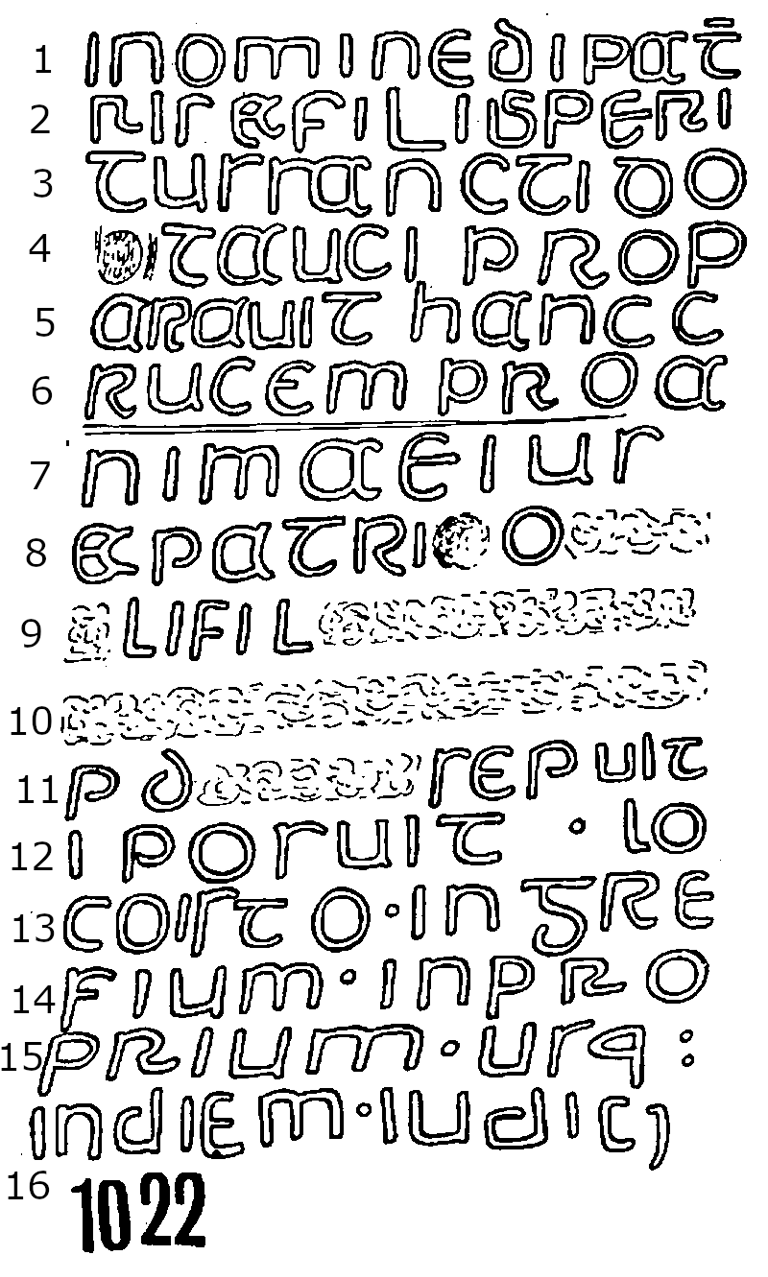 1 INOMINEDIPAT̄
2 RIS&FILISPERI
3 TUSSANCTIDO
4 TAUCI PROP
5 ARAUIT HANCC
6 RUCEM PROA
7 NIMAEIUS
8 &PATRI O
9 LIFIL
10
11 PD SEPULT
12 I POSUIT · LO
13 COISTO·INGRE
14 FIUM·INPRO
15 PRIUM·USQ:
16 INDIEM·IUDIC)
1022